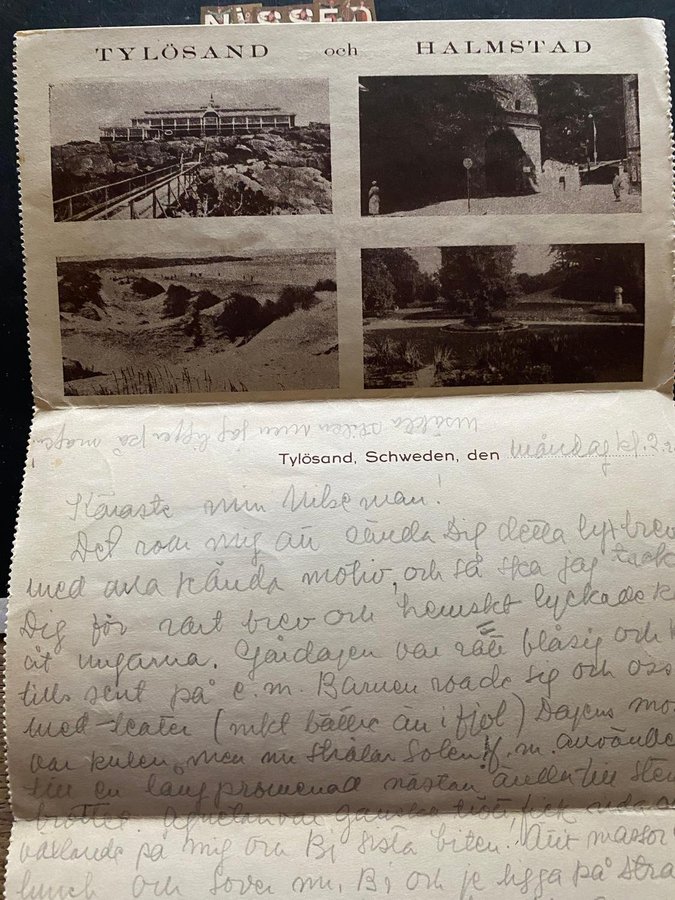 NISSEN
TYLÖSAND och HALMSTAD
ursäkta stilen men jag ligger på magen
Tylösand, Schweden, den måndag kl. 2.
Käraste min Nisse man!
Det roar mig att sända Dig detta lyxbrev
med alla kända motiv, och så ska jag tack
Dig för rart brev och hemskt lyckade
åt ungarna. Gårdagen var rätt blåsig och
tills sent på e.m. Barnen roade sig och oss
med teater (mkt bättre än i fjol) Dagens mo
var kulen, men nu strålar solen. F.m. använde
till en lång promenad nästan ända till sten
brottet. var ganska trött, fick rida
vaxlande på mig och Bi sista biten. Ätit massor
lunch och sover nu. Bi och je ligga på stra